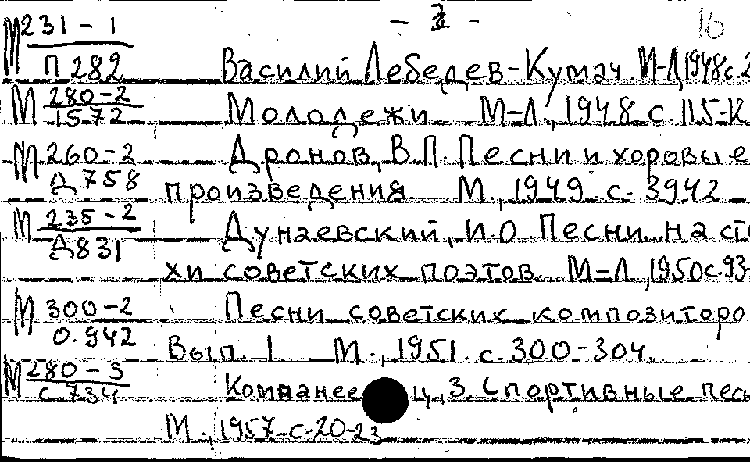 - 2 - 16
М 231-1
П 282 Василий Лебедев-Кумач. М-Л, 1948 с.
М 280-2
1572 Молодежи М-Л, 1948 с 115-12
М 260-2 Дронов, В.П. Песни и хоровые
Д 758 произведения М., 1949. с. 3942
М 235-2
Д 831 Дунаевский, И.О. Песни на сти
хи советских поэтов М-Л, 1950 с. 93-
М 300-2 Песни советских композиторо
0.942
Вып. 1 М., 1951. с. 300-304.
М 280-3
с 734 Компанеец, З. Спортивные пес
М., 1957-с-20-23